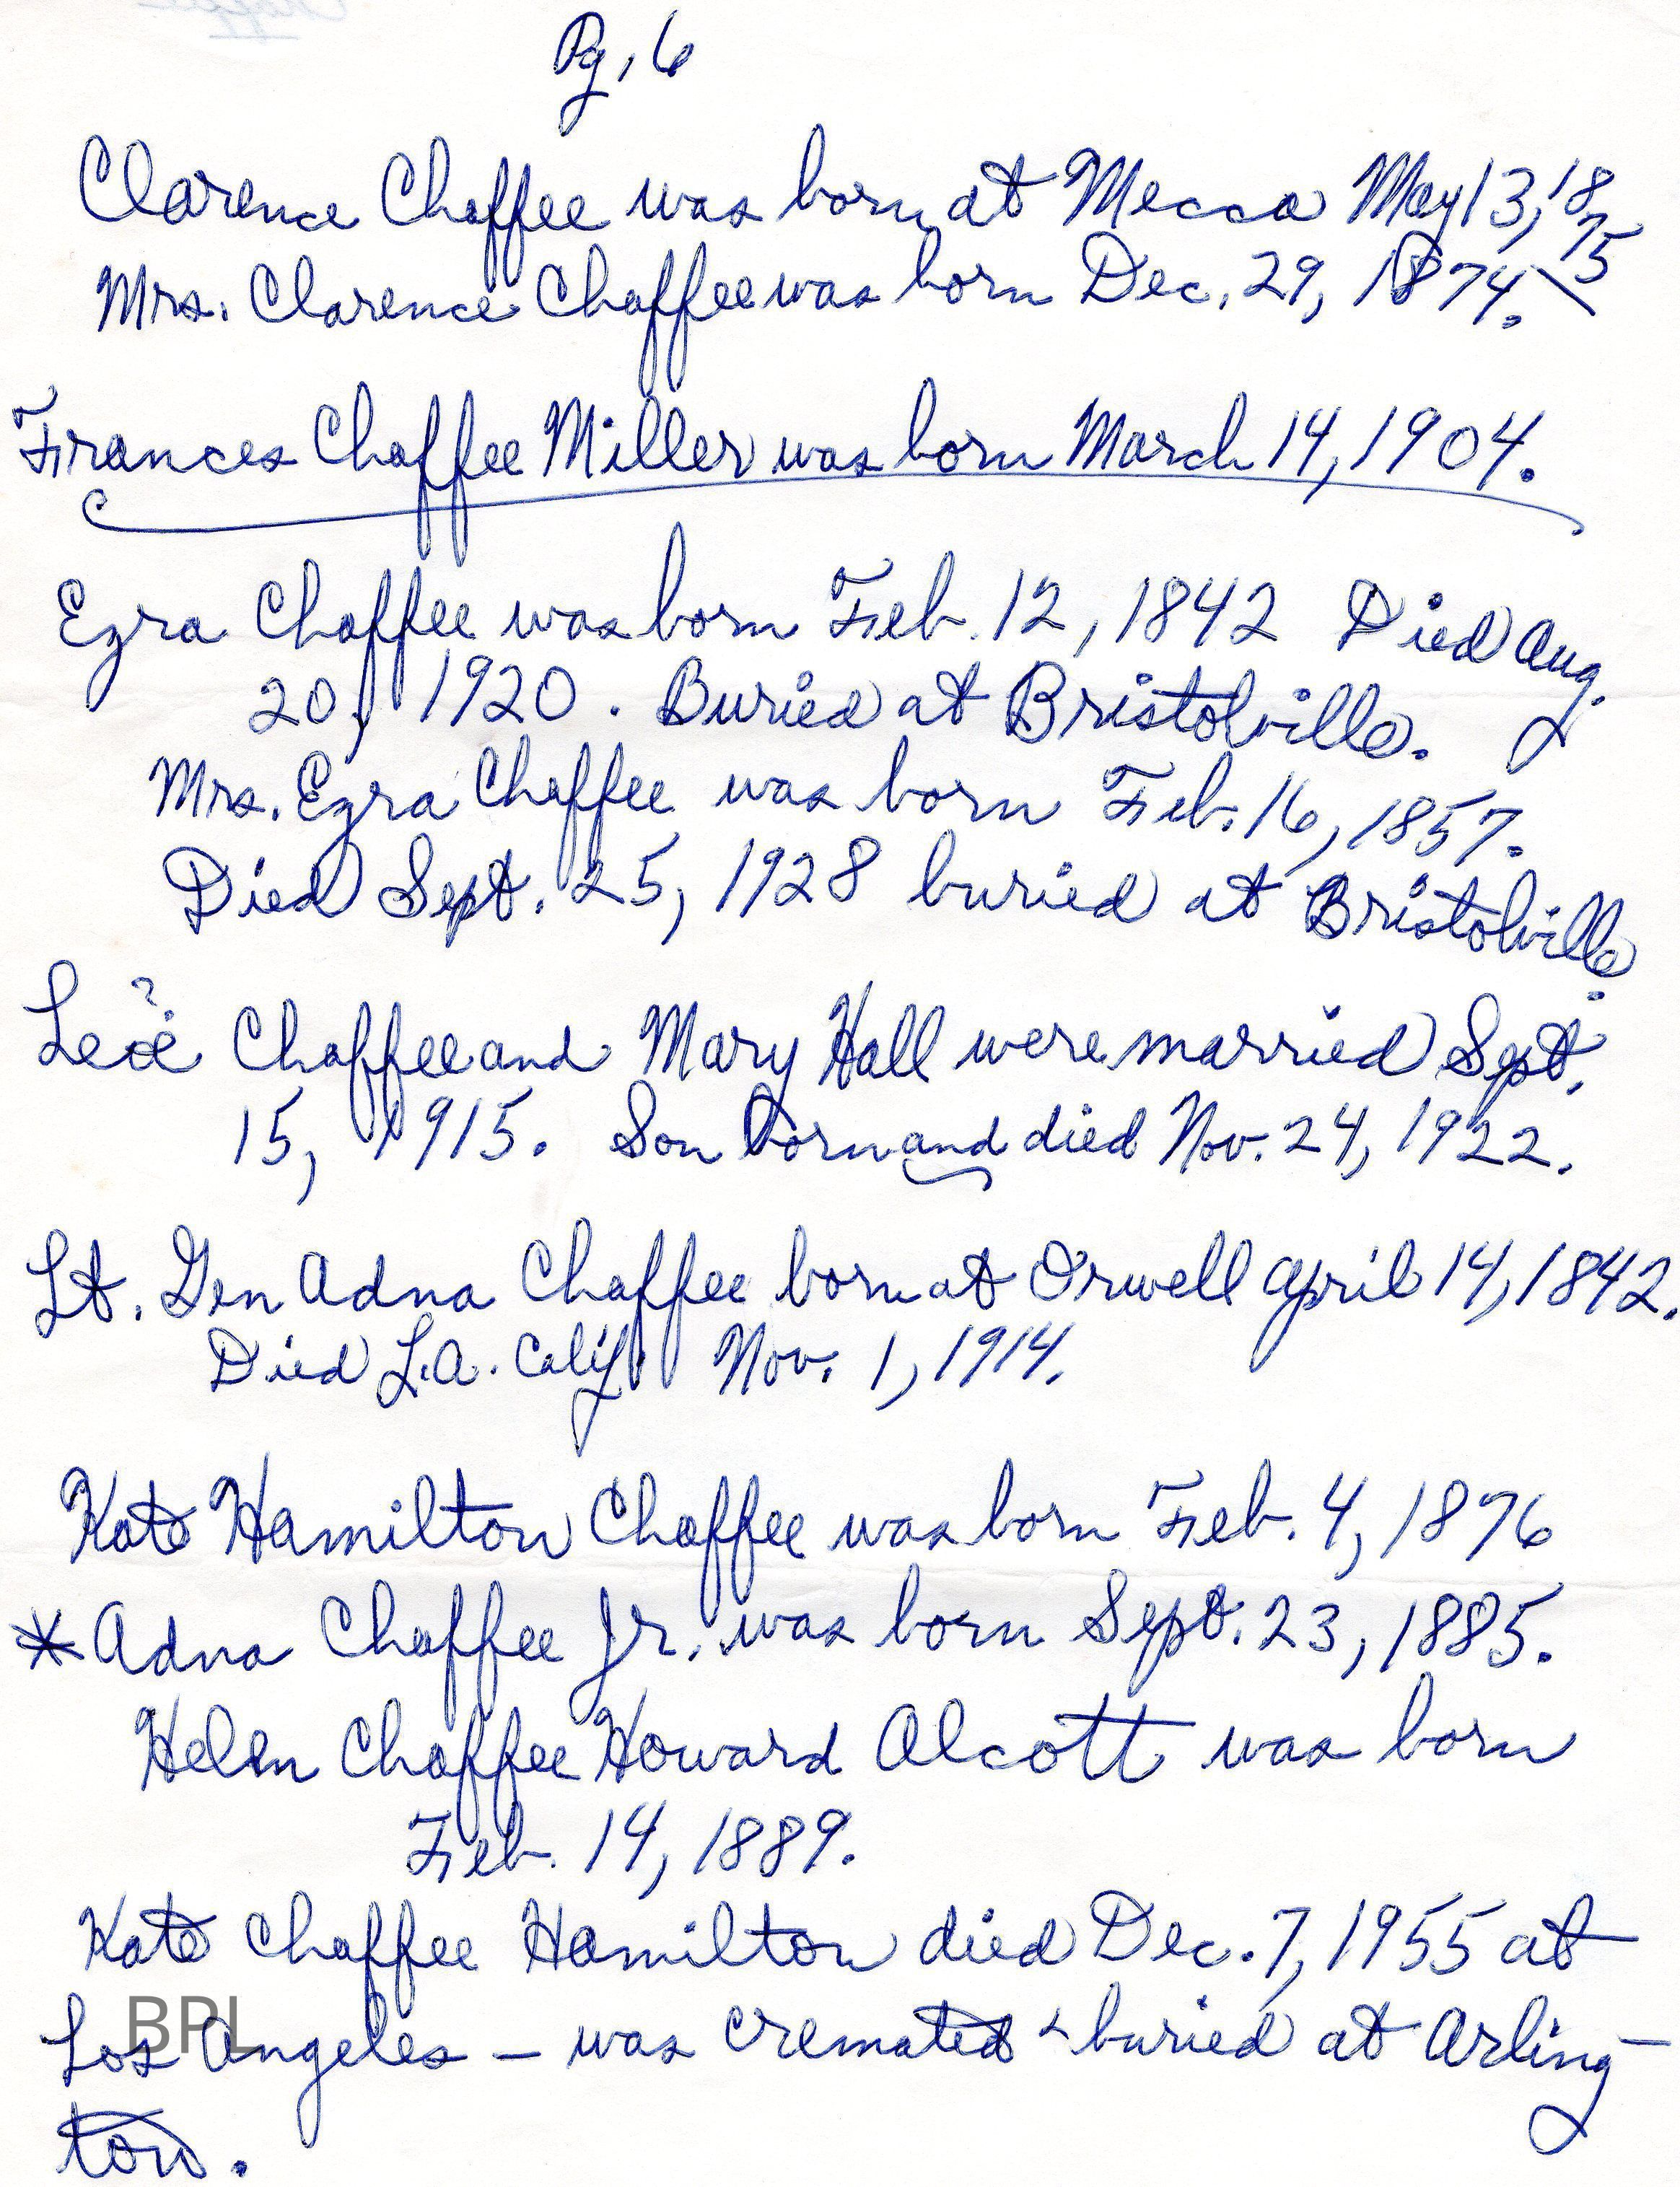 Pg. 6
Clarence Chaffee was born at Mecca May 13, 1875
Mrs. Clarence Chaffee was born Dec. 29, 1874.
Frances Chaffee Miller was born March 14, 1904.
Ezra Chaffee was born Feb. 12, 1842 Died Aug.
20, 1920. Buried at Bristolville.
Mrs. Ezra Chaffee was born Feb. 16, 1857.
Died Sept. 25, 1928 buried at Bristolville.
? Chaffee and Mary Hall were married Sept.
15, 1915. Son born and died Nov. 24, 1922.
Lt. Gen Adna Chaffee born at Orwell April 14, 1842.
Died L.A. Calif. Nov. 1, 1914.
Kate Hamilton Chaffee was born Feb. 4, 1876
* Adna Chaffee Jr. was born Sept. 23, 1885.
Helen Chaffee Howard Alcott was born
Feb. 14, 1889.
Kate Chaffee Hamilton died Dec. 7, 1955 at
Los Angeles – was cremated & buried at Arling-
ton.
BPL